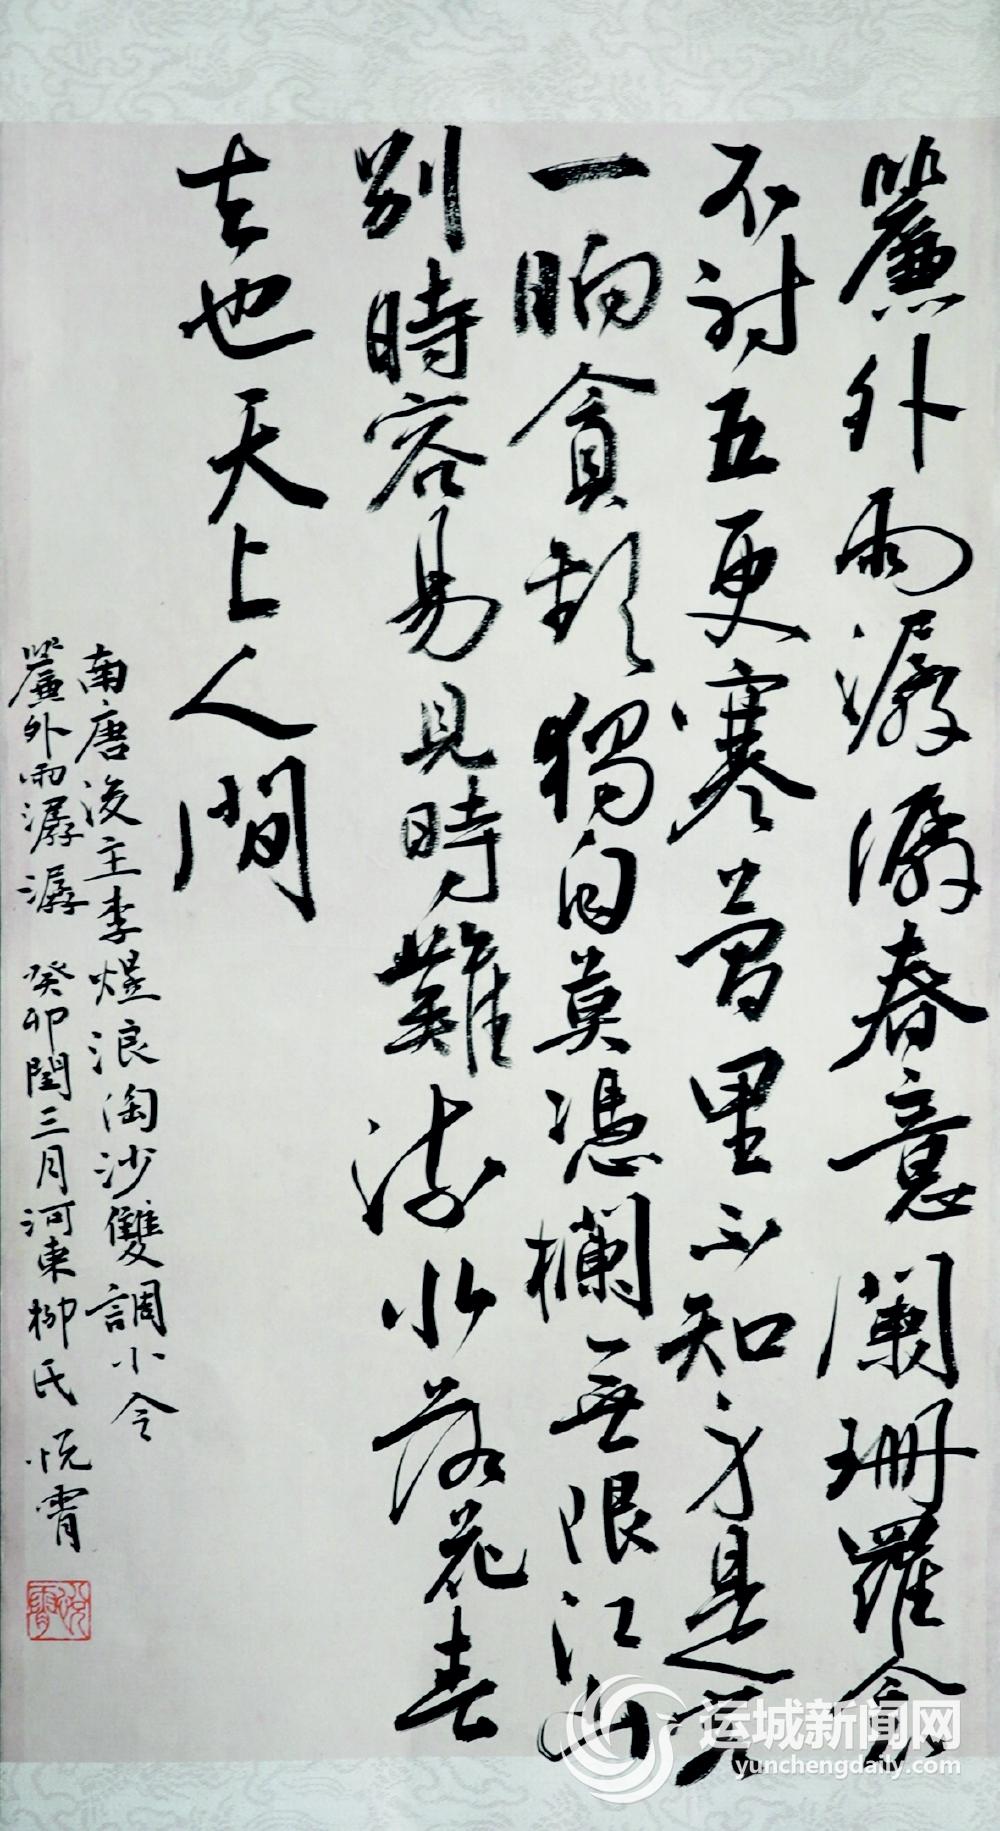 簾外雨潺潺春意闌珊羅衾
不耐五更寒夢里不知身是客
一晌貪歡獨自莫憑欄無限江山
別時容易見時難流水落花春
去也天上人間
南唐後主李煜浪淘沙雙調小令
簾外雨潺潺 癸卯閏三月河東柳氏悅霄
悅霄
运城新闻网
yunchengdaily.com